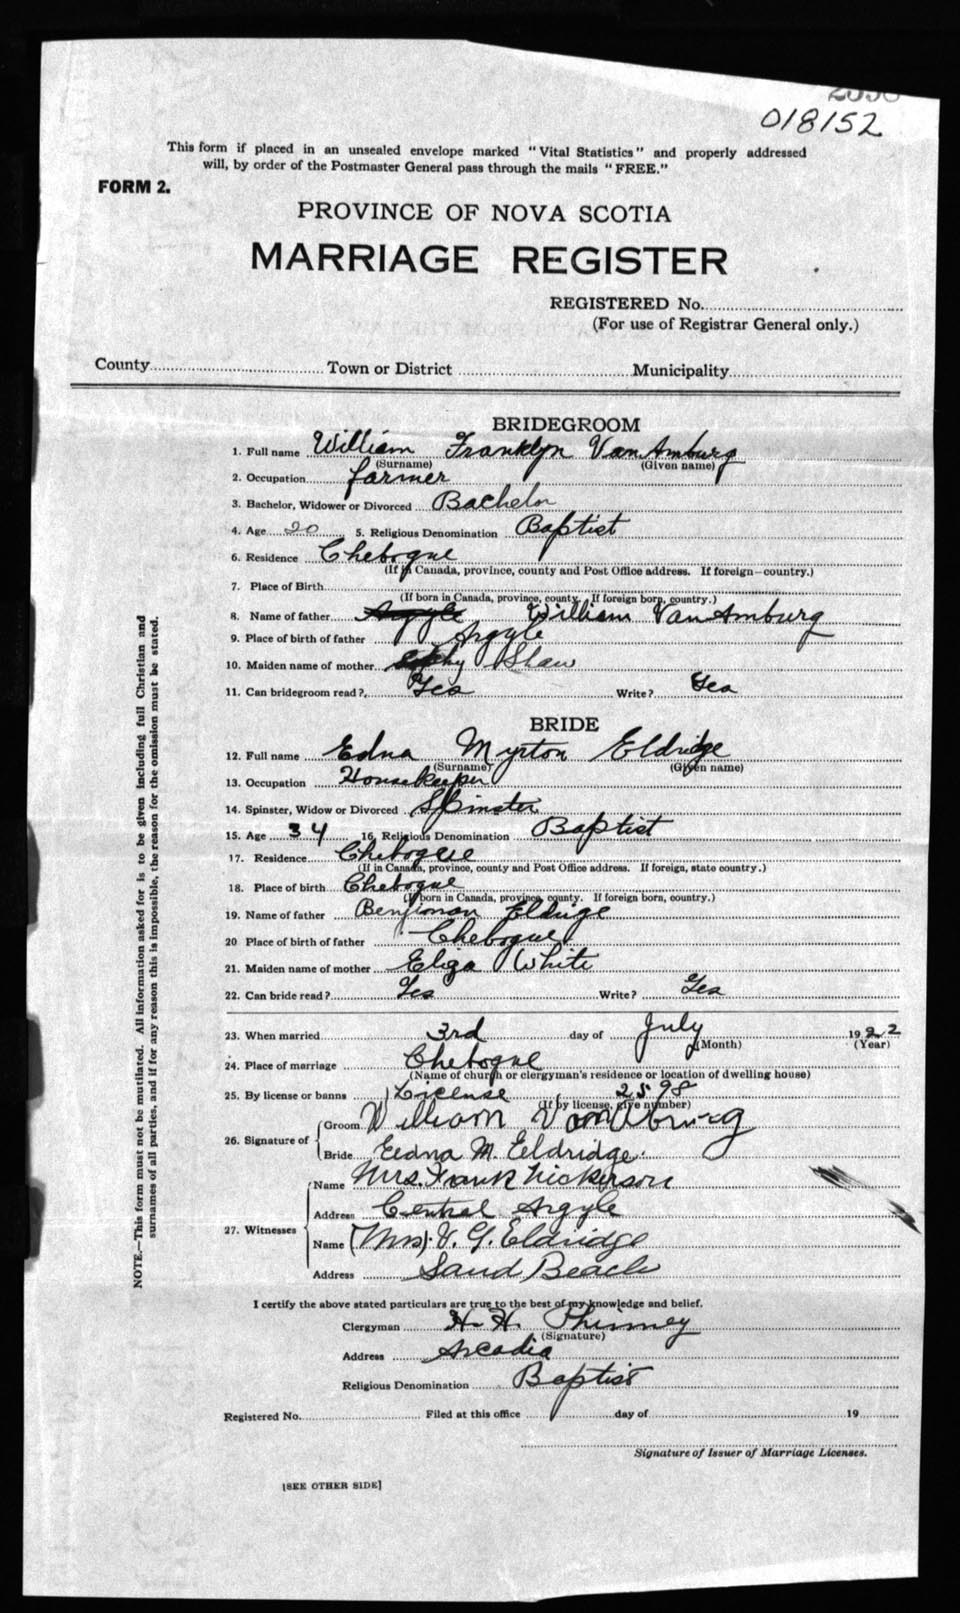 018152
This form if placed in an unsealed envelope marked "Vital Statistics" and properly addressed
will, by order of the Postmaster General pass through the mails "FREE."
FORM 2.
PROVINCE OF NOVA SCOTIA
MARRIAGE REGISTER
REGISTERED No.
(For use of Registrar General only.)
County Town or District Municipality
BRIDEGROOM
1. Full name William Franklyn VanAmburg
(Surname) (Given name)
2. Occupation farmer
3. Bachelor, Widower or Divorced Bachelor
4. Age 20 5. Religious Denomination Baptist
6. Residence Chebogue
(If in Canada, province, county and Post Office address. If foreign—country.)
7. Place of Birth
(If born in Canada, province, county. If foreign born, country.)
8. Name of father Argyle William VanAmburg
9. Place of birth of father Argyle
10. Maiden name of mother Shaw
11. Can bridegroom read? Yes Write? Yes
BRIDE
12. Full name Edna Myrton Eldridge
(Surname) (Given name)
13. Occupation Housekeeper
14. Spinster, Widow or Divorced Spinster
15. Age 34 16. Religious Denomination Baptist
17. Residence Chebogue
(If in Canada, province, county and Post Office address. If foreign, state country.)
18. Place of birth Chebogue
(If born in Canada, province, county. If foreign born, country.)
19. Name of father Benjioman Eldrige
20 Place of birth of father Chebogue
21. Maiden name of mother Eliza White
22. Can bride read? Yes Write? Yes
23. When married 3rd day of July 1922
(Month) (Year)
24. Place of marriage Chebogue
(Name of church or clergyman's residence or location of dwelling house)
25. By license or banns License 2598
(If by license, give number)
26. Signature of Groom William VanAmburg
Bride Eedna M. Eeldridge.
27. Witnesses
Name Mrs. Frank Nickerson
Address Central Argyle
Name (Mrs). V. G. Eldridge
Address Sand Beach
I certify the above stated particulars are true to the best of my knowledge and belief.
Clergyman H. H. Phinney
(Signature)
Address Arcadia
Religious Denomination Baptist
Registered No. Filed at this office day of 19
Signature of Issuer of Marriage Licenses.
[SEE OTHER SIDE]
NOTE.—This form must not be mutilated. All information asked for is to be given including full Christian and
surnames of all parties, and if for any reason this is impossible, the reason for the omission must be stated.